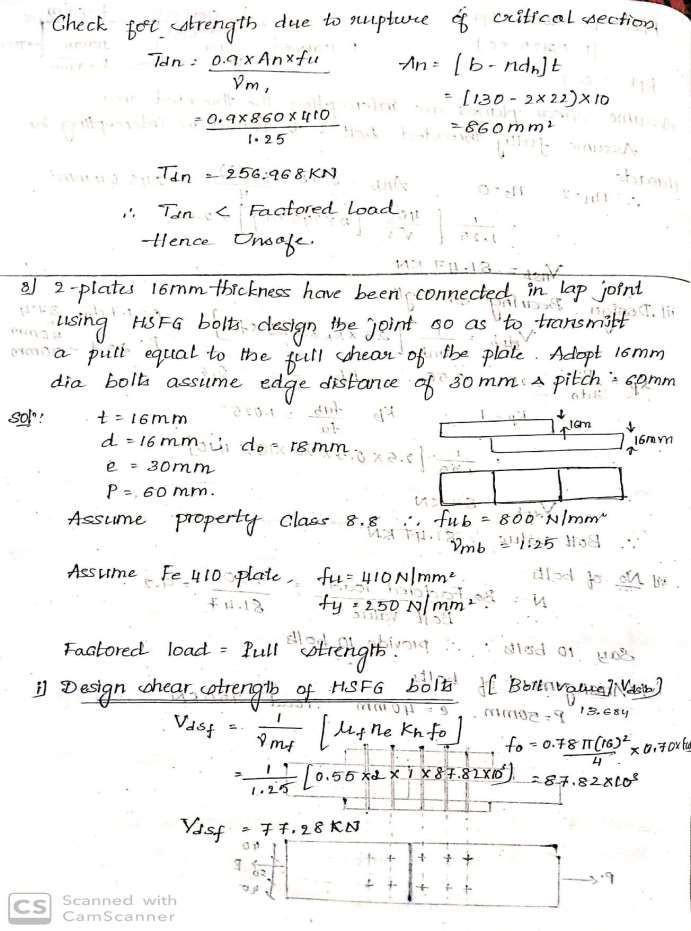 Check for strength due to rupture of critical section.
Tdn = 0.9 x An x fu / γm1
An = [b - ndh]t
= [130 - 2x22) x 10
= 860 mm²
= 0.9x860x410 / 1.25
Tdn = 256.968 KN
∴ Tdn < Factored load
Hence Unsafe.
8] 2-plates 16mm thickness have been connected in lap joint
using HSFG bolts design the joint so as to transmitt
a pull equal to the full shear of the plate. Adopt 16mm
dia bolts assume edge distance of 30 mm & pitch = 60mm
Sol^n:
t = 16mm
d = 16 mm ∴ do = 18 mm.
e = 30mm
P = 60 mm.
16m
16mm
Assume property class 8.8 ∴ fub = 800 N/mm²
γmb = 1.25
Assume Fe 410 plate, fu = 410 N/mm²
fy = 250 N/mm².
Factored load = Full strength.
i] Design shear strength of HSFG bolts [Bolt value/Vdsb]
Vdsf = 1/γmf [μf ne Kh fo]
fo = 0.78 π(16)²/4 x 0.70xfu
= 1/1.25 [0.55 x2 x 1 x 87.82x10³]
= 87.82x10³
Vdsf = 77.28 KN
CS Scanned with
CamScanner